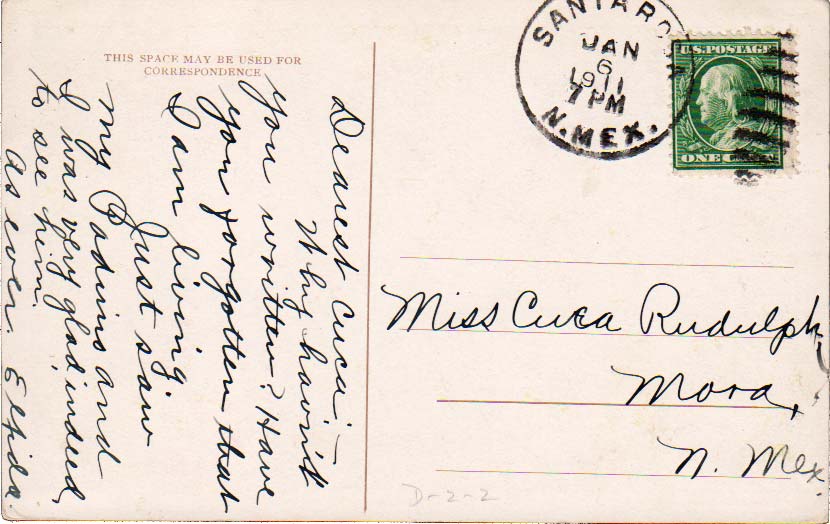 THIS SPACE MAY BE USED FOR
CORRESPONDENCE
Dearest Cuca:—
Why havn't
you written? Have
you forgotten that
I am living.
Just saw
my Padrino and
I was very glad, indeed,
to see him.
As ever, Elfida.
SANTA ROSA
JAN
6
1911
7 PM
N. MEX.
U.S. POSTAGE
ONE CENT
Miss Cuca Rudulph,
Mora,
N. Mex.
D-2-2